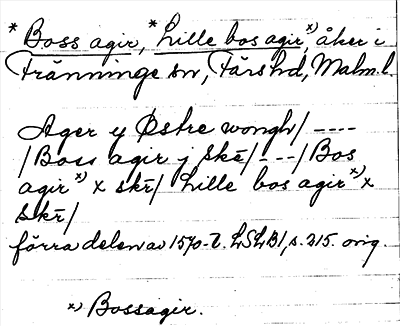 * Boss agir, * Lille bos agir x), åker i
Tränninge sn, Färs hd, Malm. l.
Ager y Østre wongh/ ----
/Boss agir j skē/ --- /Bos
agir x) x skr̄/ Lille bos agir x) x
skr̄/
förra delen av 1570-t. LSLB1, s. 215. orig.
x) Bossagir.